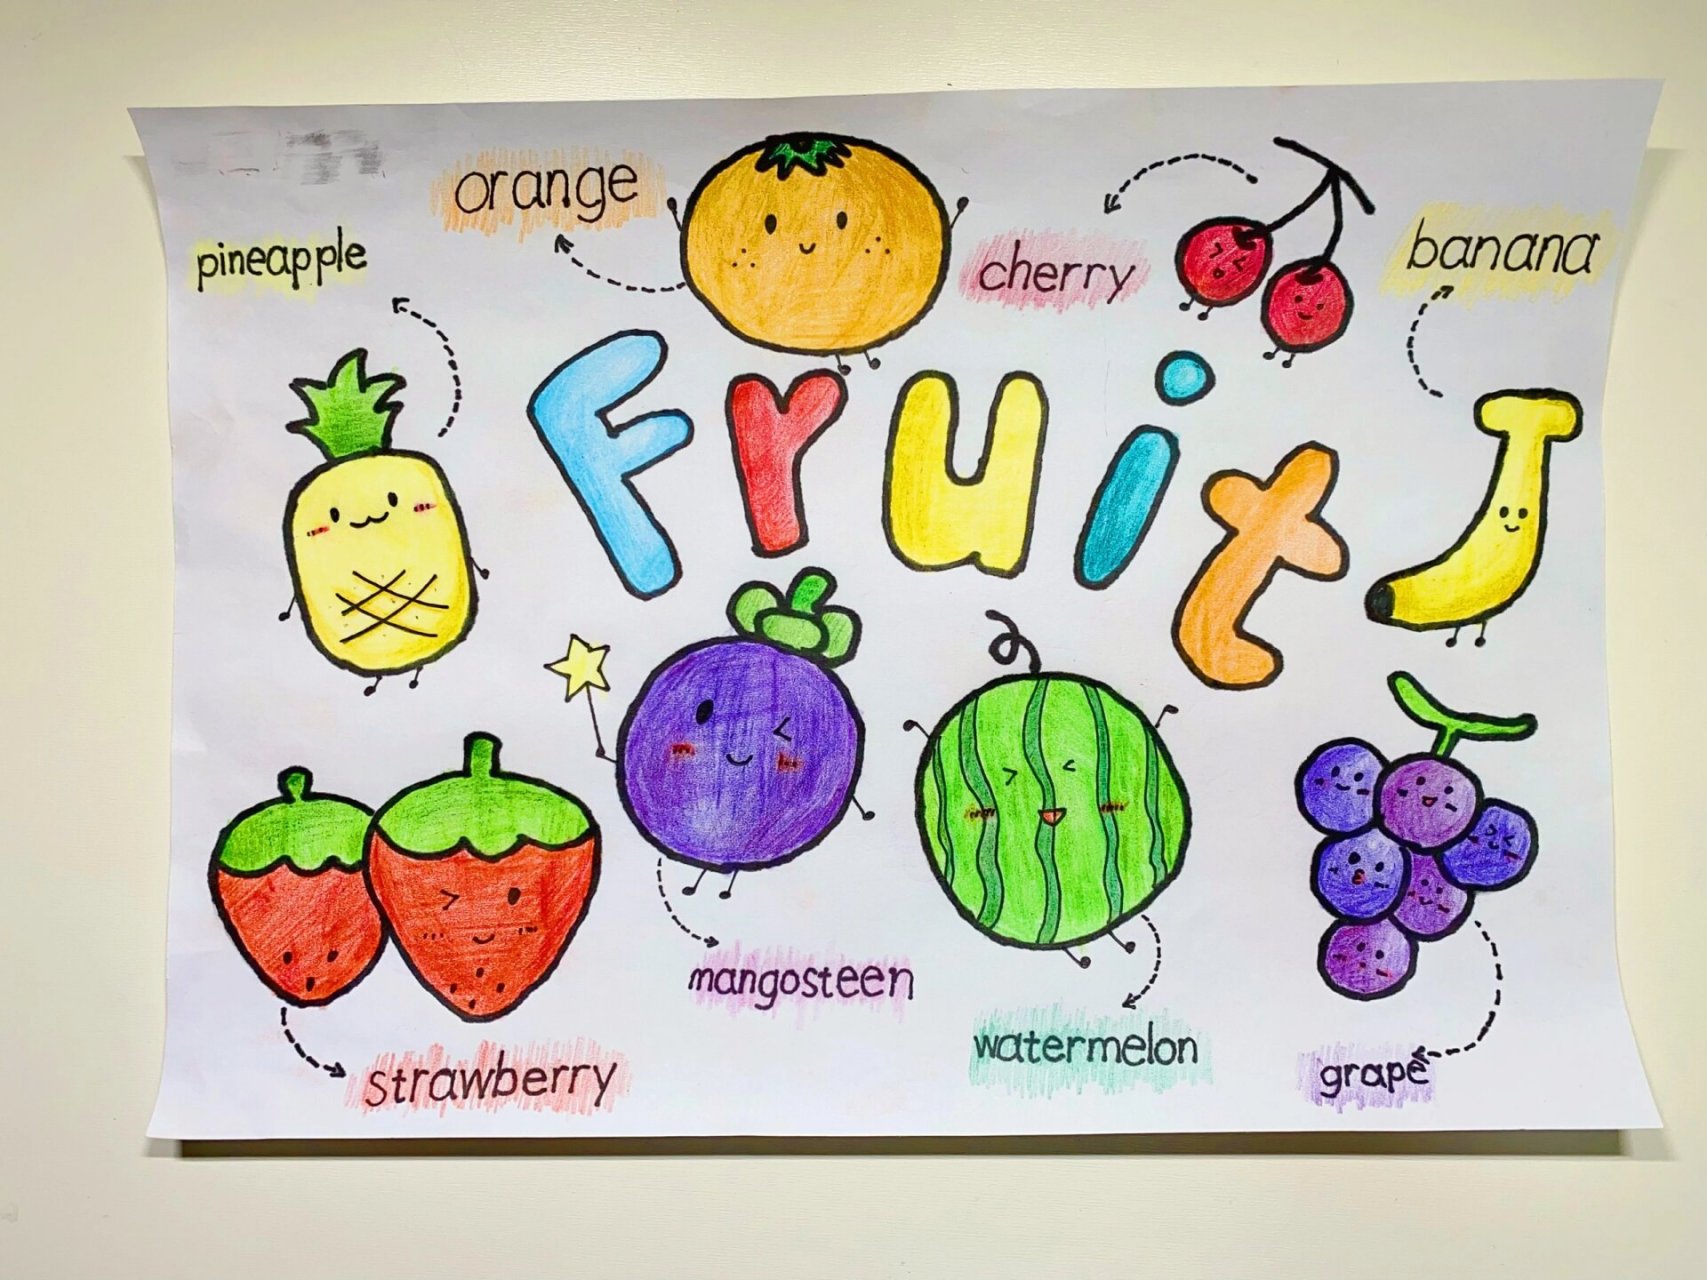 orange
pineapple
cherry
banana
Fruit
mangosteen
watermelon
strawberry
grape